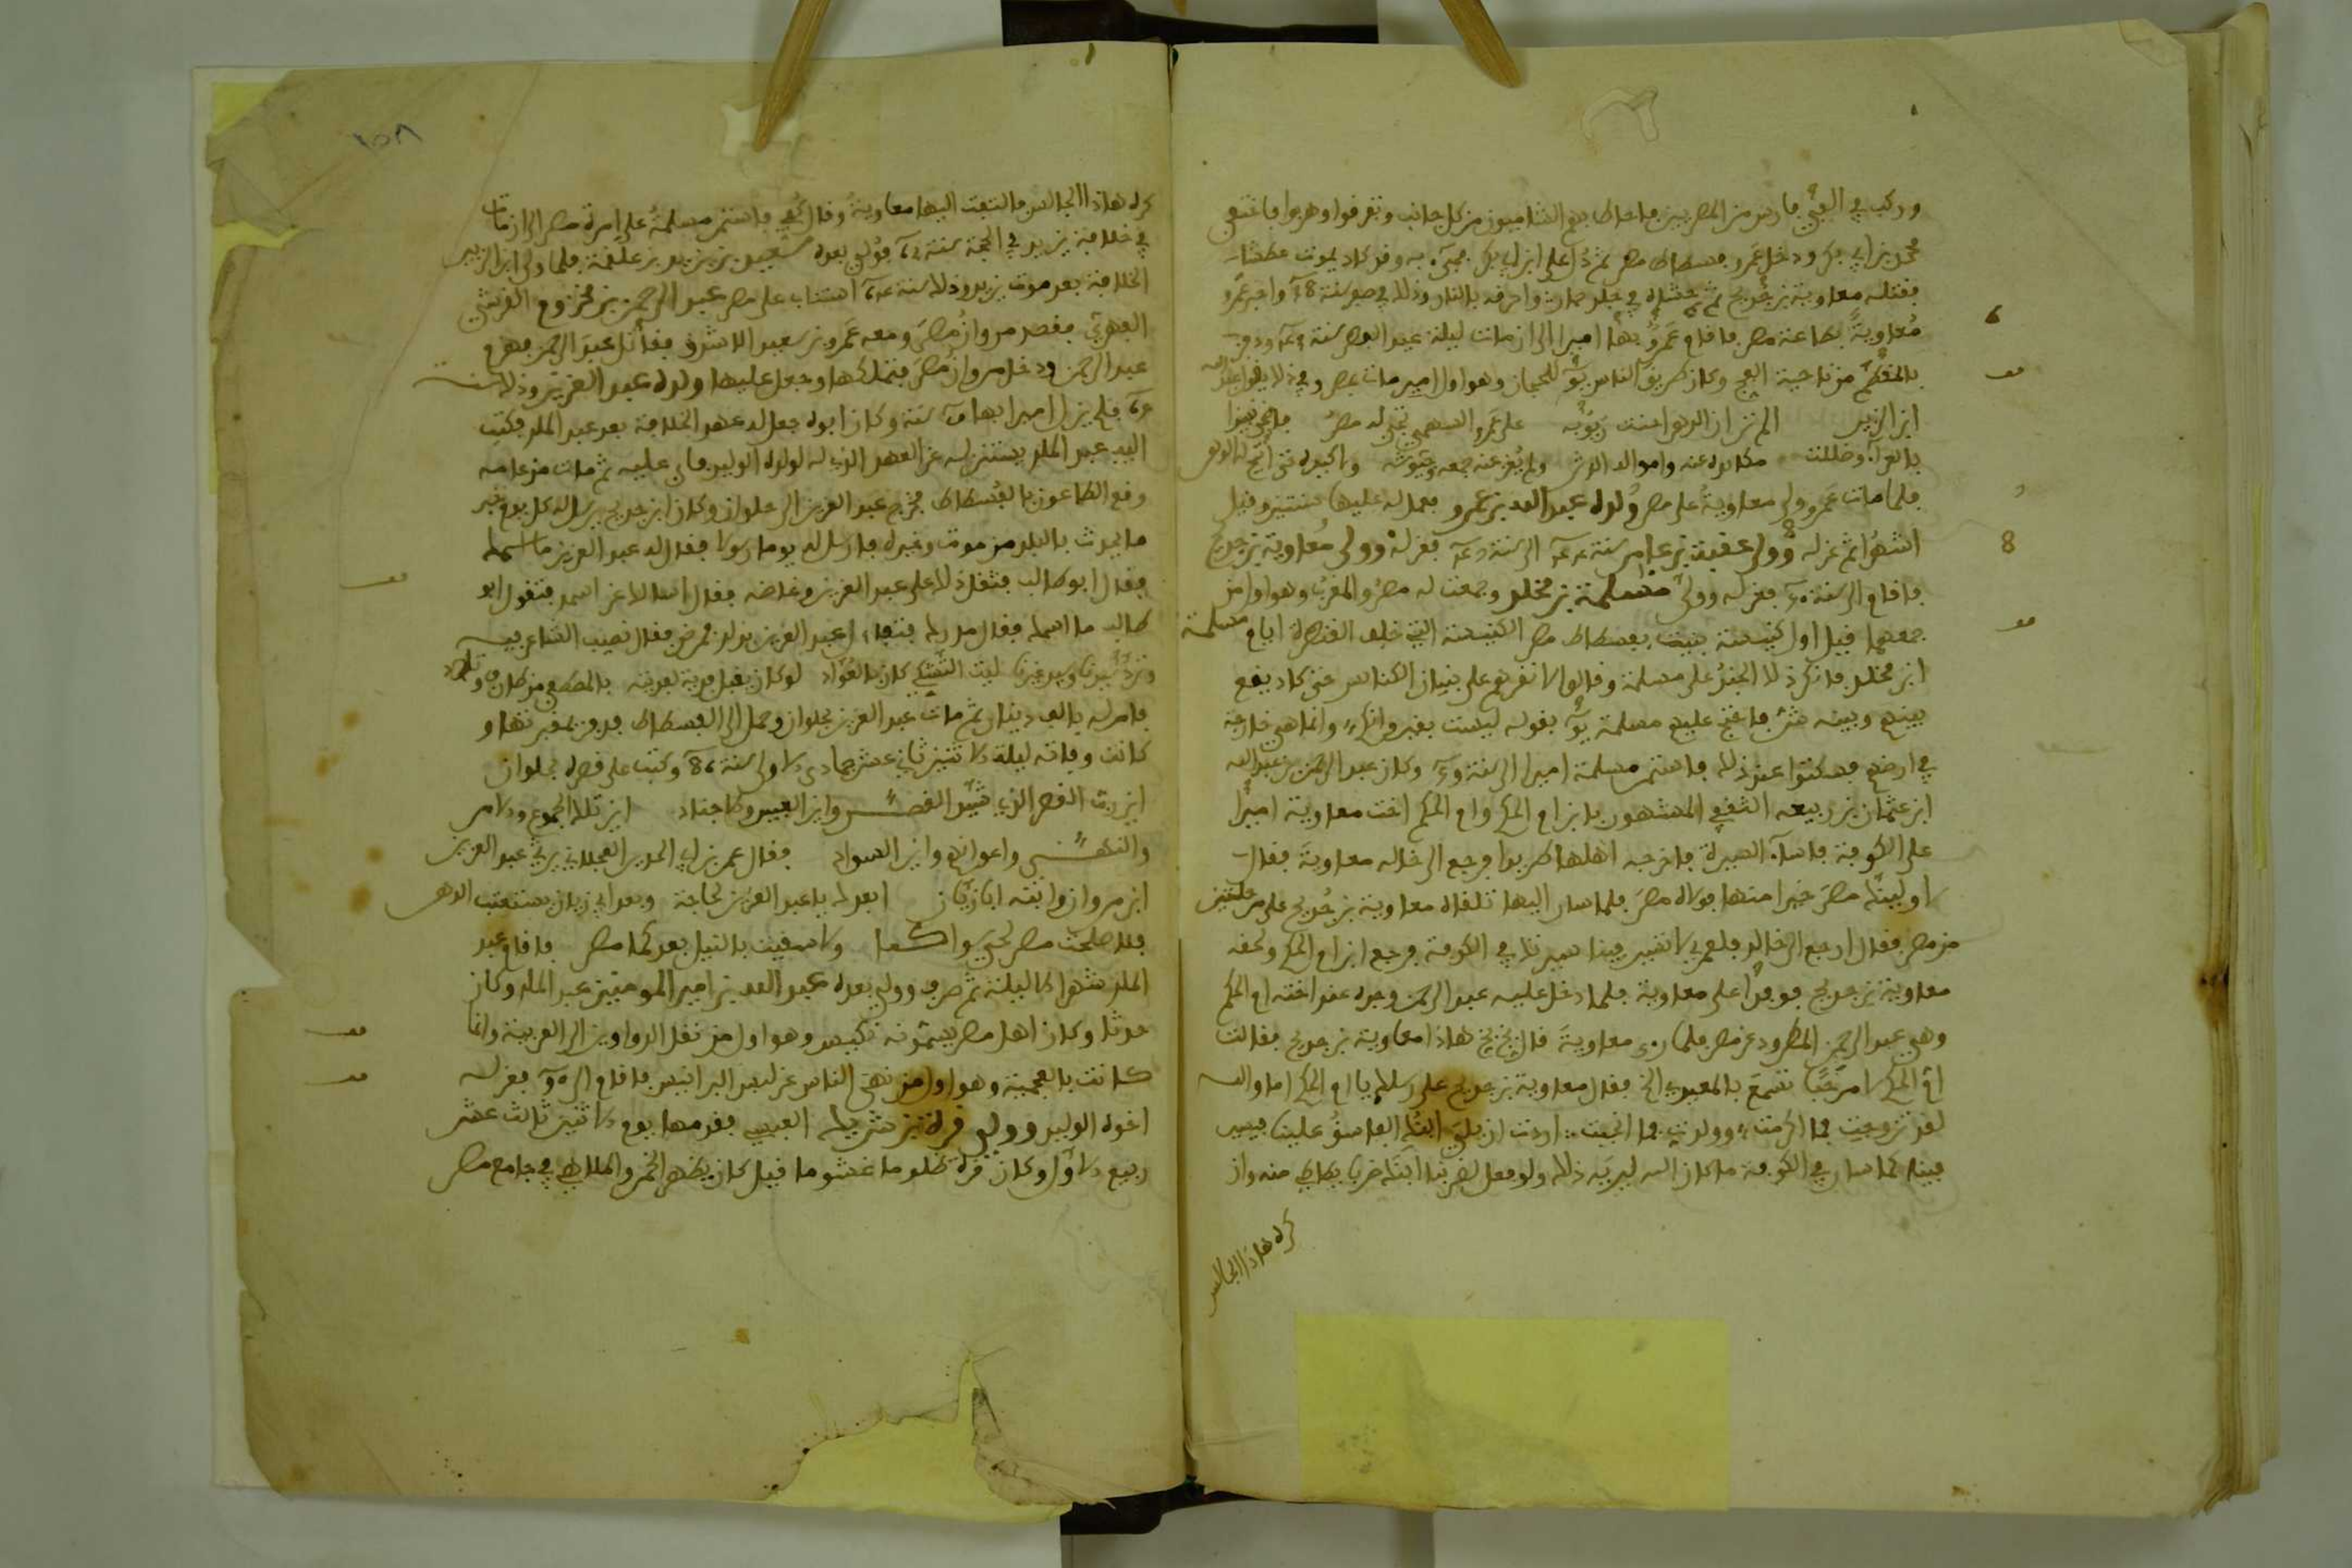 وركب في ألفي فارس من المصريين فأحاط بهم الشاميون من كل جانب وتفرقوا وهربوا فاختفى
محمد بن أبي بكر ودخل عمرو فسطاط مصر ثم دل على ابن أبي بكر فجيء به وقد كاد يموت عطشا
فقتله معاوية بن حديج ثم حشاه في جلد حمار وأحرقه بالنار وذلك في صفر سنة
معاوية بطاعة مصر فأقام عمرو بها أميرا إلى أن مات ليلة عيد الفطر سنة ودفن
بالمقطم من ناحية الفج وكان طريق الناس للحجاز وهو أول أمير مات بمصر وفي ذلك يقول عبد الله
ابن الزبير ألم تر أن الدهر على عمرو السهمي تجبى له مصر
ولم يغن عنه جمعه
فلما مات عمرو ولى معاوية على مصر ولده عبد الله بن عمرو فعمل له عليها سنتين وقيل
أشهرا ثم عزله وولى عقبة بن عامر سنة إلى سنة فعزله وولى معاوية بن حديج
فأقام إلى سنة فعزله وولى مسلمة بن مخلد وجمعت له مصر والمغرب وهو أول من
جمعهما قيل أول كنيسة بنيت بفسطاط مصر الكنيسة التي خلف القنطرة أيام مسلمة
ابن مخلد فأنكر ذلك الجند على مسلمة وقالوا لا تقرهم على بنيان الكنائس حتى كاد يقع
بينهم وبينه شر فاحتج عليهم مسلمة بقوله ليست بقيروانكم وإنما هي خارجة
في أرضهم فسكتوا عند ذلك فاستمر مسلمة أميرا إلى سنة وكان عبد الرحمن بن عبد الله
ابن عثمان بن ربيعة الثقفي المشهور بابن أم الحكم وأم الحكم أخت معاوية أميرا
على الكوفة فأساء السيرة فأخرجه أهلها طريدا فرجع إلى خاله معاوية فقال
لأولينك مصر خيرا منها فولاه مصر فلما سار إليها تلقاه معاوية بن حديج على مرحلتين
من مصر فقال ارجع إلى خالك فلعمري لا تسير فينا سيرتك في الكوفة فرجع ابن أم الحكم ولحقه
معاوية بن حديج فوفد على معاوية فلما دخل عليه عبد الرحمن وجده عند أخته أم الحكم
وهي عبد الرحمن المطرود عن مصر فلما رءاه معاوية قال بخ بخ هاذا معاوية بن حديج فقالت
أم الحكم لا مرحبا تسمع بالمعيدي الخ فقال معاوية بن حديج على رسلك يا أم الحكم أما والله
لقد تزوجت فما أكرمت وولدت فما أنجبت أردت أن يلي ابنك الفاسق علينا فيسير
فينا كما سار في الكوفة ما كان الله ليريه ذلك ولو فعل لضربنا ابنك ضربا يطاطي منه وإن
كره هاذا الجالس
كره هاذا الجالس فالتفت إليها معاوية وقال كفي فاستمر مسلمة على إمرة مصر إلى أن مات
في خلافة يزيد في الحجة سنة فولي بعده سعيد بن يزيد بن علقمة فلما ولي ابن الزبير
الخلافة بعد موت يزيد وذلك سنة استناب على مصر عبد الرحمن بن مخزوم القرشي
الفهري فقصد مروان مصر ومعه عمرو بن سعيد الأشدق فقاتل عبد الرحمن فهزم
عبد الرحمن ودخل مروان مصر فتملكها وجعل عليها ولده عبد العزيز وذلك سنة
فلم يزل أميرا بها سنة وكان أبوه جعل له عهد الخلافة بعد عبد الملك فكتب
إليه عبد الملك يستنزله عن العهد الذي له لولده الوليد فأبى عليه ثم مات من عامه
وقع الطاعون بالفسطاط فخرج عبد العزيز إلى حلوان وكان ابن حديج يرسل له كل يوم بخبر
ما يحدث بالبلد من موت وغيره فأرسل له يوما رسولا فقال له عبد العزيز ما اسمك
فقال أبو طالب فثقل ذلك على عبد العزيز وغاضه فقال أسألك عن اسمك فتقول أبو
طالب ما اسمك فقال مدرك فتفاءل عبد العزيز بذلك فمرض فقال نصيب الشاعر
ليت التشكي كان بالعواد لو كان يقبل فدية لفديته بالمصطفى من طارفي وتلادي
فأمر له بألف دينار ثم مات عبد العزيز بحلوان وحمل إلى الفسطاط فدفن بمقبرتها و
كانت وفاته ليلة الاثنين ثاني عشر جمادى الأولى سنة 86 وكتب على قصره بحلوان
أين رب القصر الذي شيد القصر وأين العبيد والأجناد أين تلك الجموع والأمر
والنهي وأعوانهم وأين السواد فقال عمر بن أبي الجدير العجلاني يرثي عبد العزيز
ابن مروان وابنه أبا زبان أبعدك يا عبد العزيز لحاجة وبعد أبي زبان يستعتب الدهر
فلا صلحت مصر لحي سواكما ولا سقيت بالنيل بعدكما مصر فأقام عبد
الملك شهرا إلا ليلة ثم صرف وولي بعده عبد الله بن أمير المومنين عبد الملك وكان
حدثا وكان أهل مصر يسمونه تكيس وهو أول من نقل الدواوين إلى العربية وإنما
كانت بالعجمية وهو أول من نهى الناس عن لبس البرانيس فأقام إلى فعزله
أخوه الوليد وولى قرة بن شريك العبسي فقدمها يوم الاثنين ثالث عشر
ربيع الأول وكان قرة ظلوما غشوما قيل كان يظهر الخمر والملاهي في جامع مصر